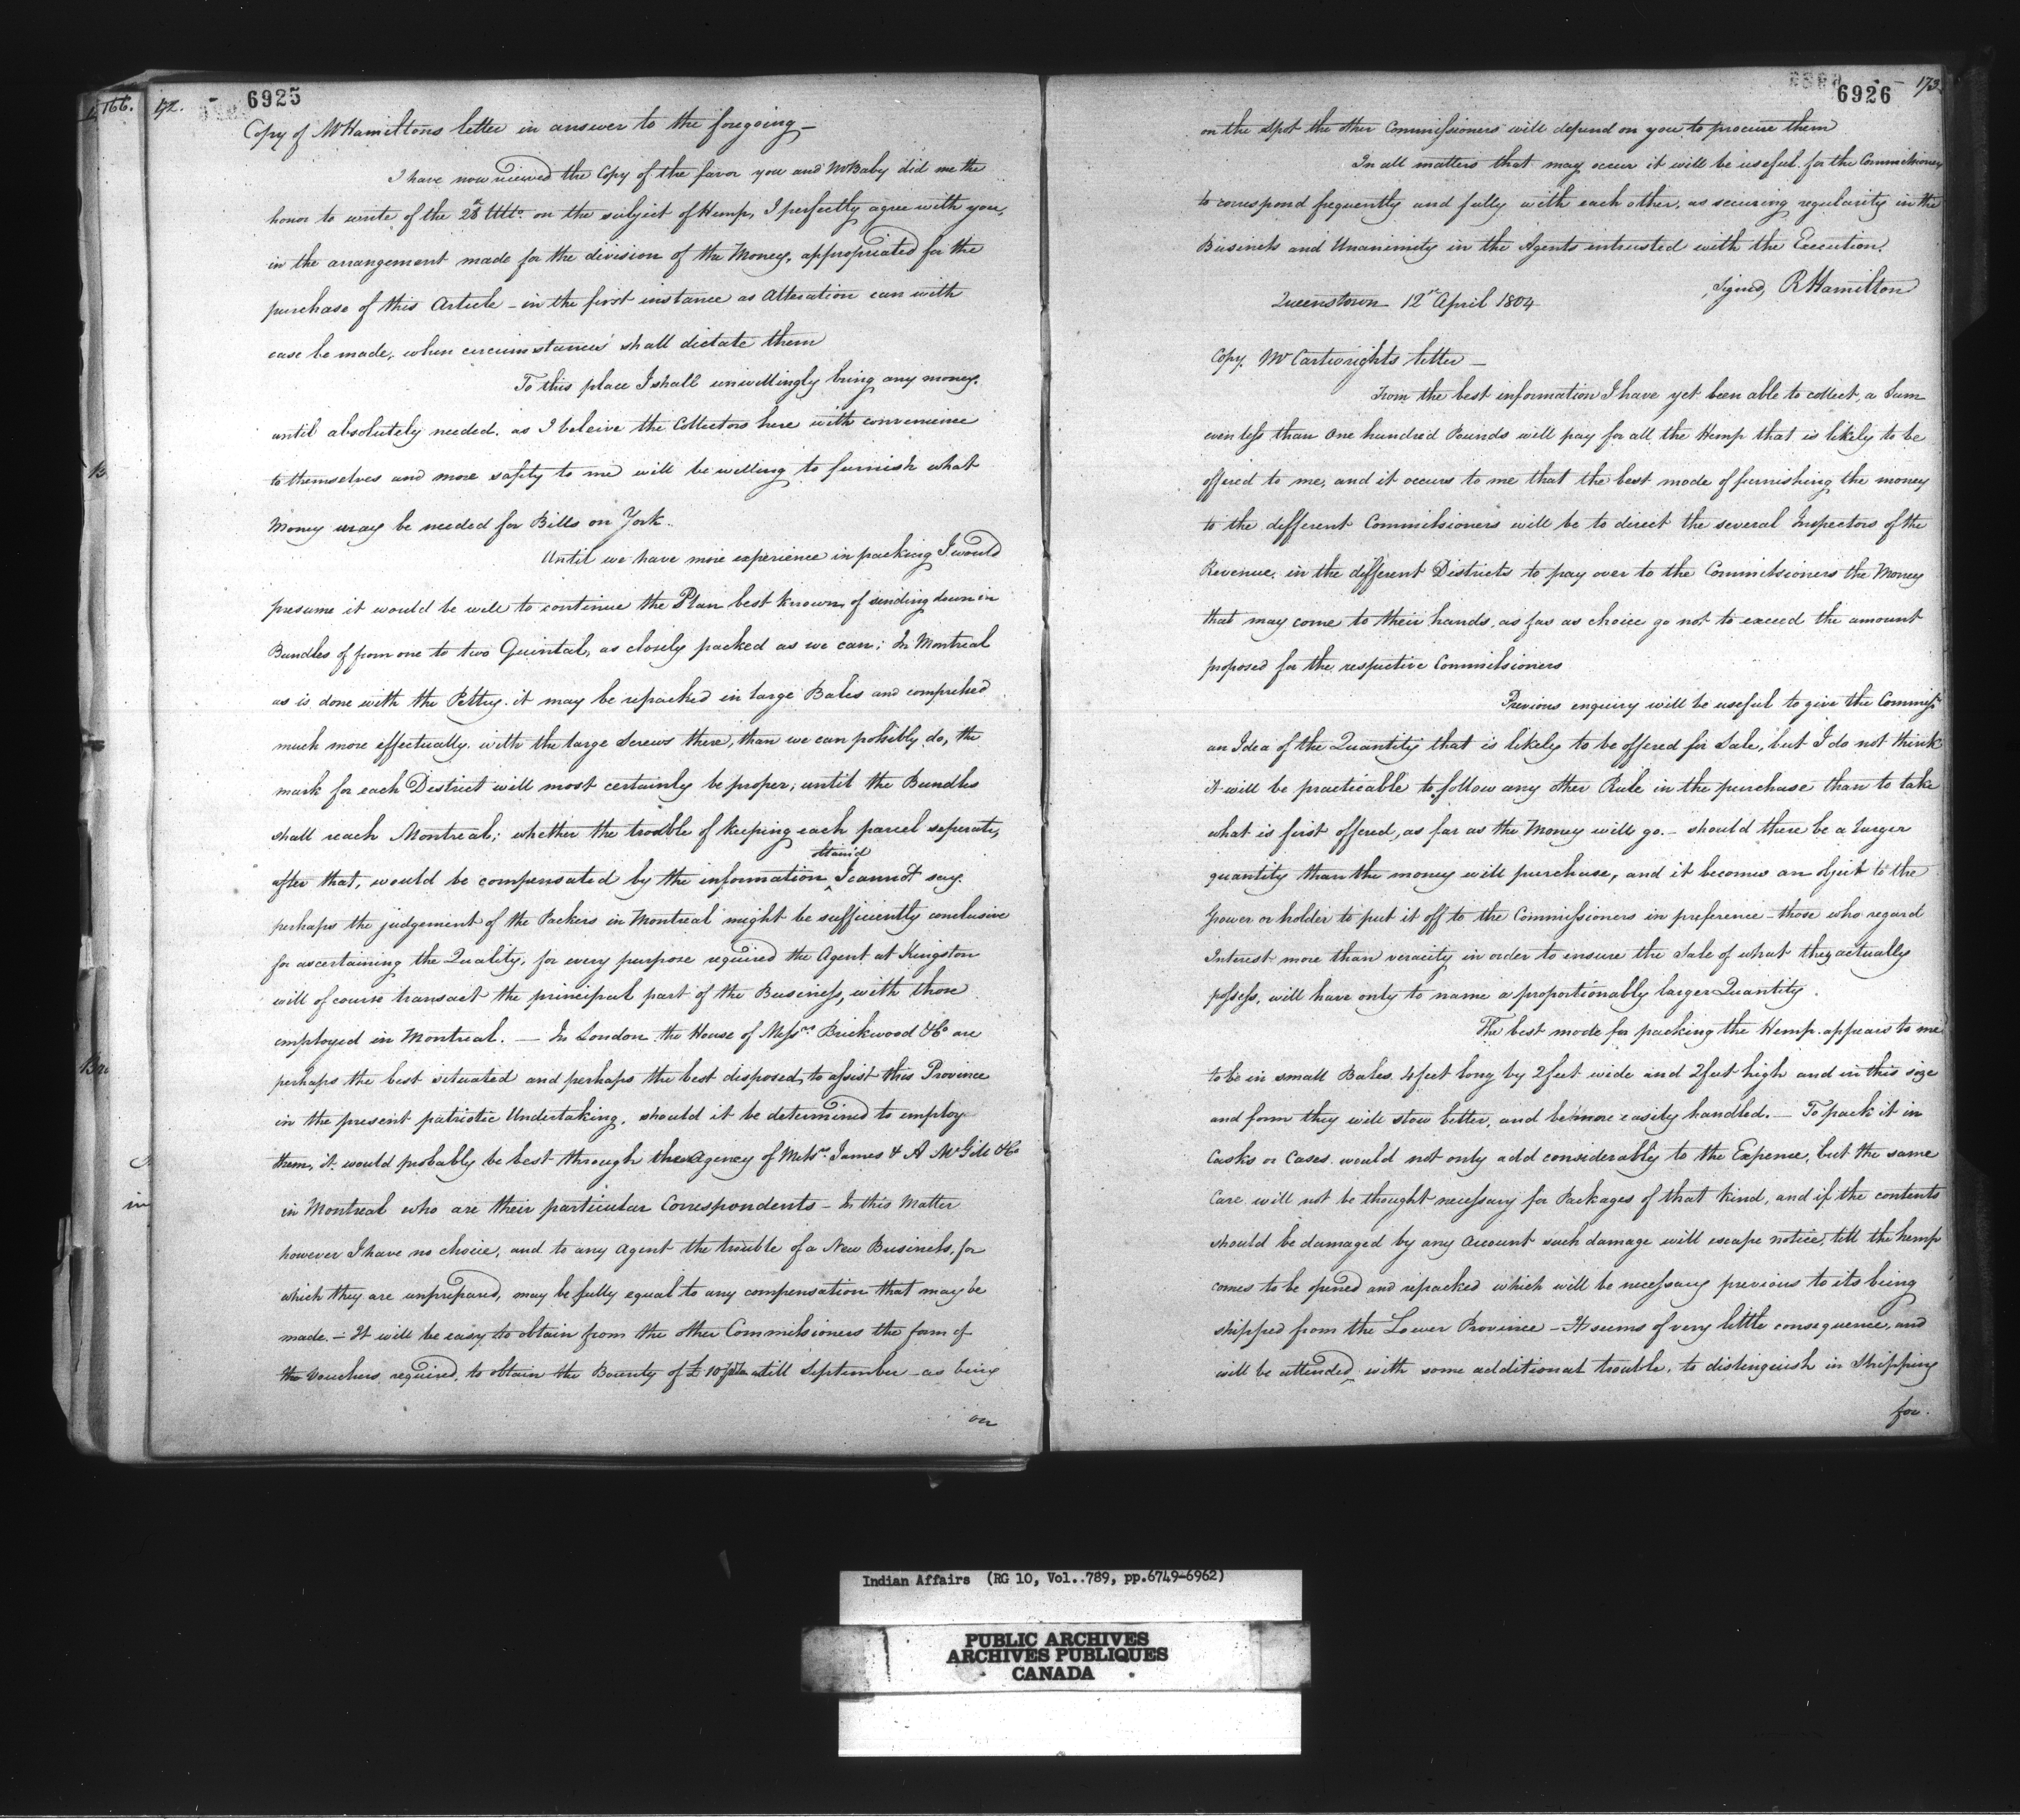 166.
172.
6925
Copy of Mr Hamiltons letter in answer to the foregoing —
I have now viewed the Copy of the favor you and Mr Baby did me the
honor to write of the 28th Ulto. on the subject of Hemp, I perfectly agree with you,
in the arrangement made for the division of the Money, appropriated for the
purchase of this Article — in the first instance as Alteration can with
ease be made, when circumstances shall dictate them
To this place I shall unwillingly bring any money,
until absolutely needed, as I beleive the Collectors here with convenience
to themselves and more safety to me will be willing to furnish what
Money may be needed for Bills on York.
Until we have more experience in packing I would
presume it would be well to continue the Plan best known of sending down in
Bundles of from one to two Quintal, as closely packed as we can; In Montreal
as is done with the Peltry. it may be repacked in large Bales and compressed
much more effectually with the large Screws there, than we can possibly do, the
mark for each District will most certainly be proper, until the Bundles
shall reach Montreal; whether the trouble of keeping each parcel seperate,
obtain'd
after that, would be compensated by the information ^ I cannot say.
perhaps the judgement of the Packers in Montreal might be sufficiently conclusive
for ascertaining the Quality, for every purpose required the Agent at Kingston
will of course transact the principal part of the Business, with those
employed in Montreal. — In London the House of Messrs Brickwood & Co are
perhaps the best situated and perhaps the best disposed, to assist this Province
in the present patriotic Undertaking, should it be determined to employ
them, it would probably be best through the Agency of Messrs. James & A McGill & Co
in Montreal who are their particular Correspondents — In this Matter
however I have no choice, and to any Agent the trouble of a New Business, for
which they are unprepared, may be fully equal to any compensation that may be
made. — It will be easy to obtain from the other Commissioners the form of
the Vouchers required, to obtain the Bounty of £10 till September — as being
on
6926
173.
on the spot the other Commissioners will depend on you to procure them
In all matters that may occur it will be useful for the Commissioners
to correspond frequently and fully with each other, as securing regularity in the
Business and Unanimity in the Agents intrusted with the Execution.
Signed, R Hamilton
Queenstown 12th April 1804
Copy. Mr Cartwrights letter —
From the best information I have yet been able to collect, a Sum
even less than One hundred Pounds will pay for all the Hemp that is likely to be
offered to me, and it occurs to me that the best mode of furnishing the money
to the different Commissioners will be to direct the several Inspectors of the
Revenue, in the different Districts to pay over to the Commissioners the Money
that may come to their hands, as far as choice go not to exceed the amount
proposed for the respective Commissioners
Previous enquiry will be useful to give the Commissrs
an Idea of the Quantity that is likely to be offered for Sale, but I do not think
it will be practicable to follow any other Rule in the purchase than to take
what is first offered, as far as the Money will go. — should there be a larger
quantity than the money will purchase, and it becomes an object to the
Grower or holder to put it off to the Commissioners in preference — those who regard
Interest more than veracity in order to ensure the Sale of what they actually
possess, will have only to name a proportionably larger Quantity.
The best mode for packing the Hemp appears to me
to be in small Bales 4 feet long by 2 feet wide and 2 feet high and in this size
and form they will stow better, and be more easily handled. — To pack it in
Casks or Cases would not only add considerably to the Expence, but the same
Care will not be thought necessary for Packages of that kind, and if the contents
should be damaged by any Account such damage will escape notice, till the hemp
comes to be opened and repacked which will be necessary previous to its being
shipped from the Lower Province — It seems of very little consequence, and
will be attended, with some additional trouble, to distinguish in Shipping
for.
Indian Affairs (RG 10, Vol..789, pp.6749-6962)
PUBLIC ARCHIVES
ARCHIVES PUBLIQUES
CANADA